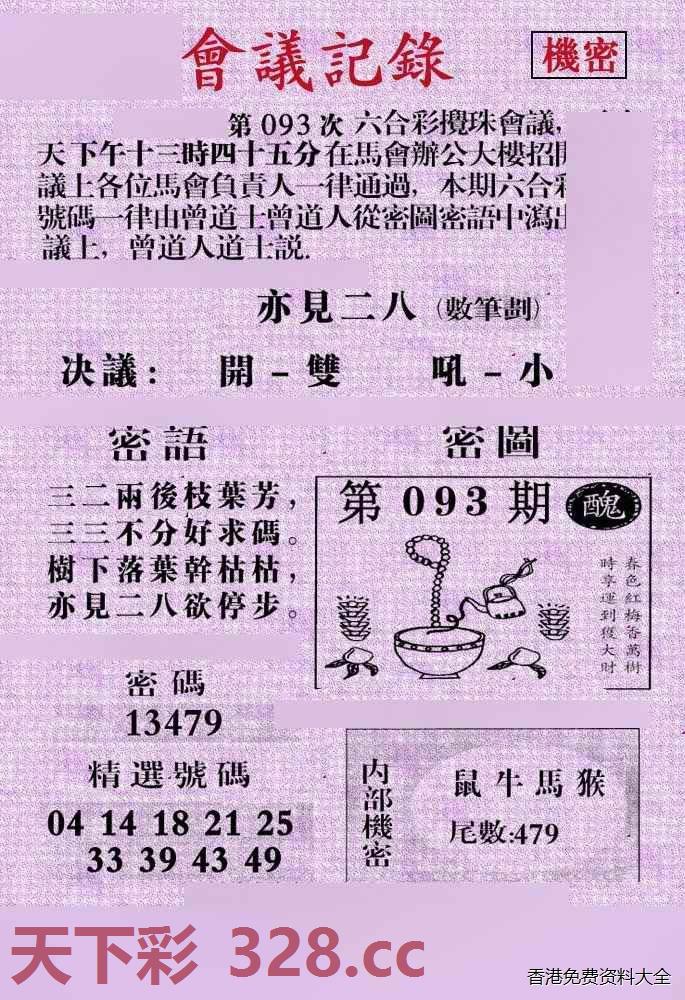 會議記錄
機密
第 093 次 六合彩攪珠會議,
天下午十三時四十五分在馬會辦公大樓招開
議上各位馬會負責人一律通過, 本期六合彩
號碼一律由曾道士曾道人從密圖密語中瀉出
議上, 曾道人道士説.
亦見二八 (數筆劃)
决議: 開-雙 吼-小
密語
三二兩後枝葉芳,
三三不分好求碼。
樹下落葉幹枯枯,
亦見二八欲停步。
密圖
第 093 期 醜
春色紅梅香萬樹
時享運到獲大財
密碼
13479
精選號碼
04 14 18 21 25
33 39 43 49
内部機密
鼠牛馬猴
尾數:479
天下彩 328.cc
香港免费资料大全